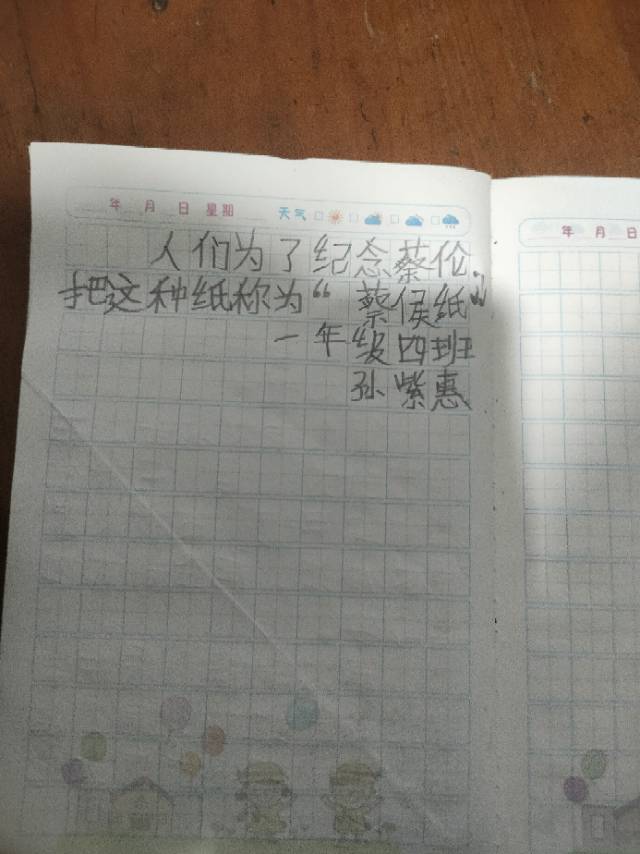 年 月 日 星期 天气
人们为了纪念蔡伦,
把这种纸称为“蔡侯纸”。
一年级四班
孙紫惠
年 月 日